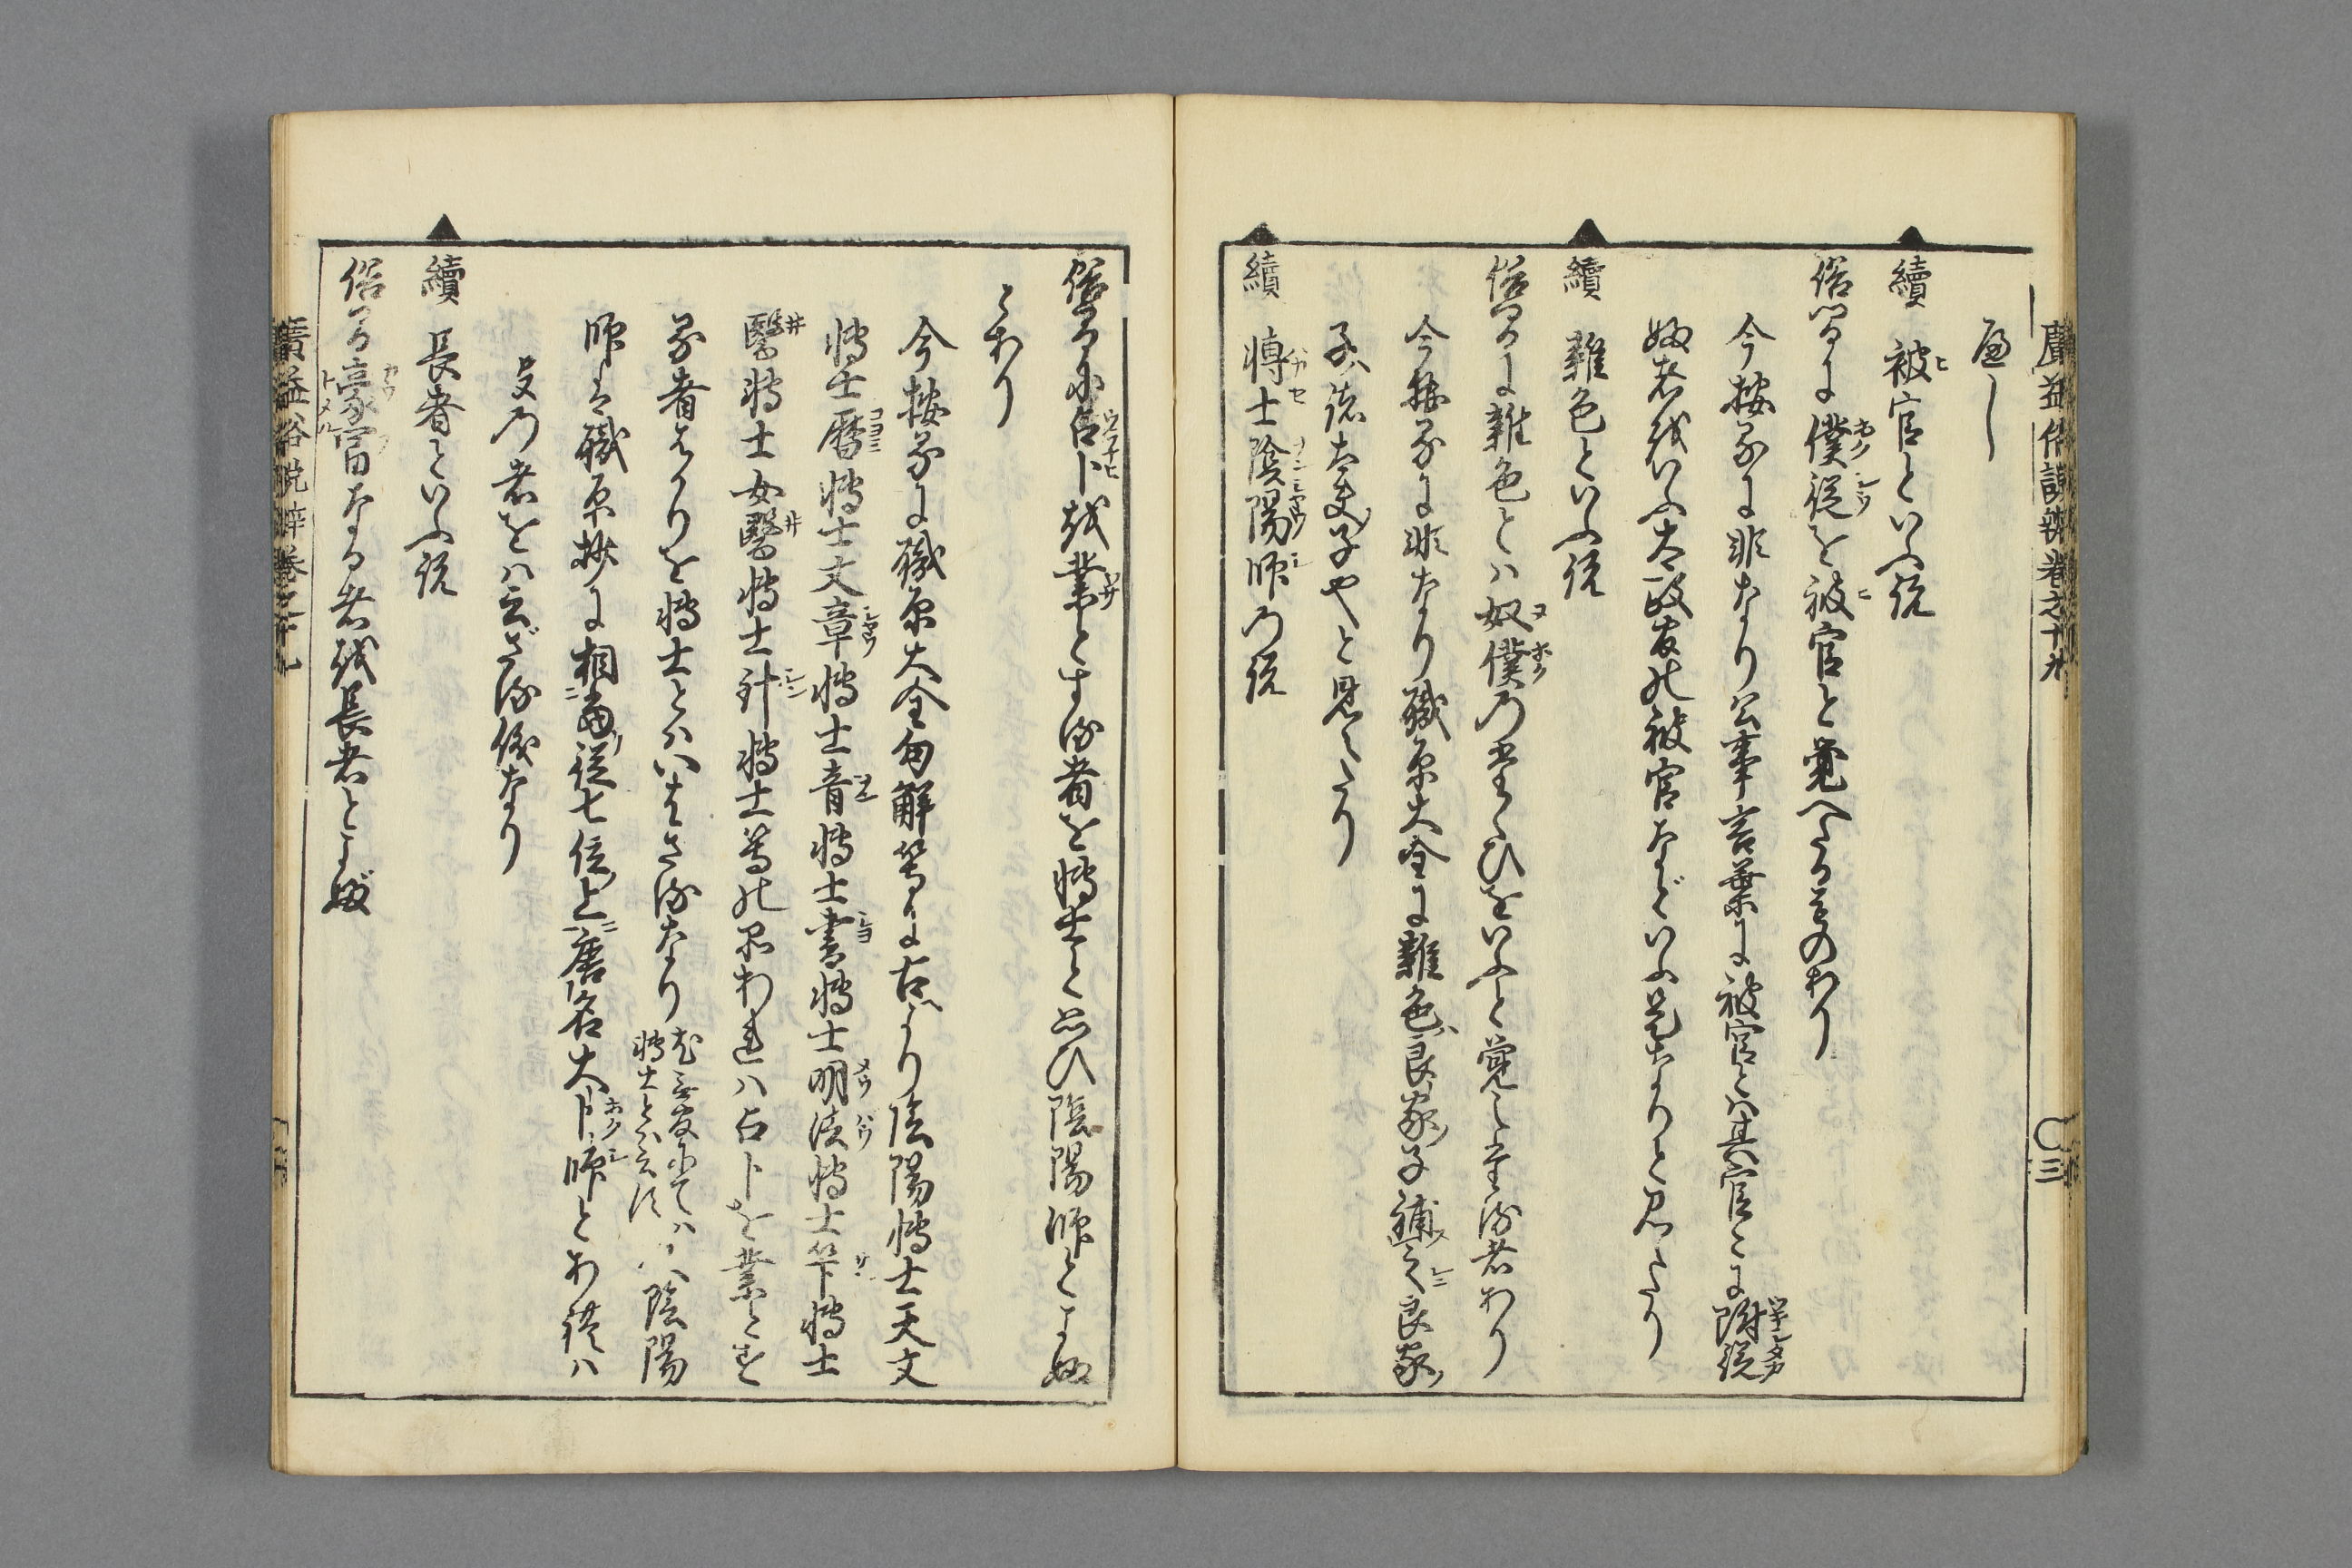 廣益俗説辨巻之十九
○三
べし
續 被官といふ説
俗間に僕従を被官と覚へたるものあり
今按るに非なり公事言葉に被官とは其官々に附従
ぬる者をいふ太政官の被官などいふ是なりと見へたり
續 雜色といふ説
俗間に雜色とは奴僕の たぐひをいふと覚へ たる者あり
今按るに非なり職原大全に雜色良家子補之良家
子諸大夫子也と見へたり
續 博士陰陽師の説
俗間に占卜を業とする者を博士と云ひ陰陽師とよぶ
ことあり
今按るに職原大全句解等に古より陰陽博士天文
博士暦博士文章博士音博士書博士明法博士筭博士
醫博士女醫博士針博士等の品あれは占卜を業とす
る者ばかりを博士とはいはざるなり
博士とは云ず
陰陽
師は職原抄に相當従七位上唐名大卜師とあれは
その者をは云ざる儀なり
續 長者といふ説
俗間る豪富なる者を長者とよぶ
廣益俗説辨巻之十九